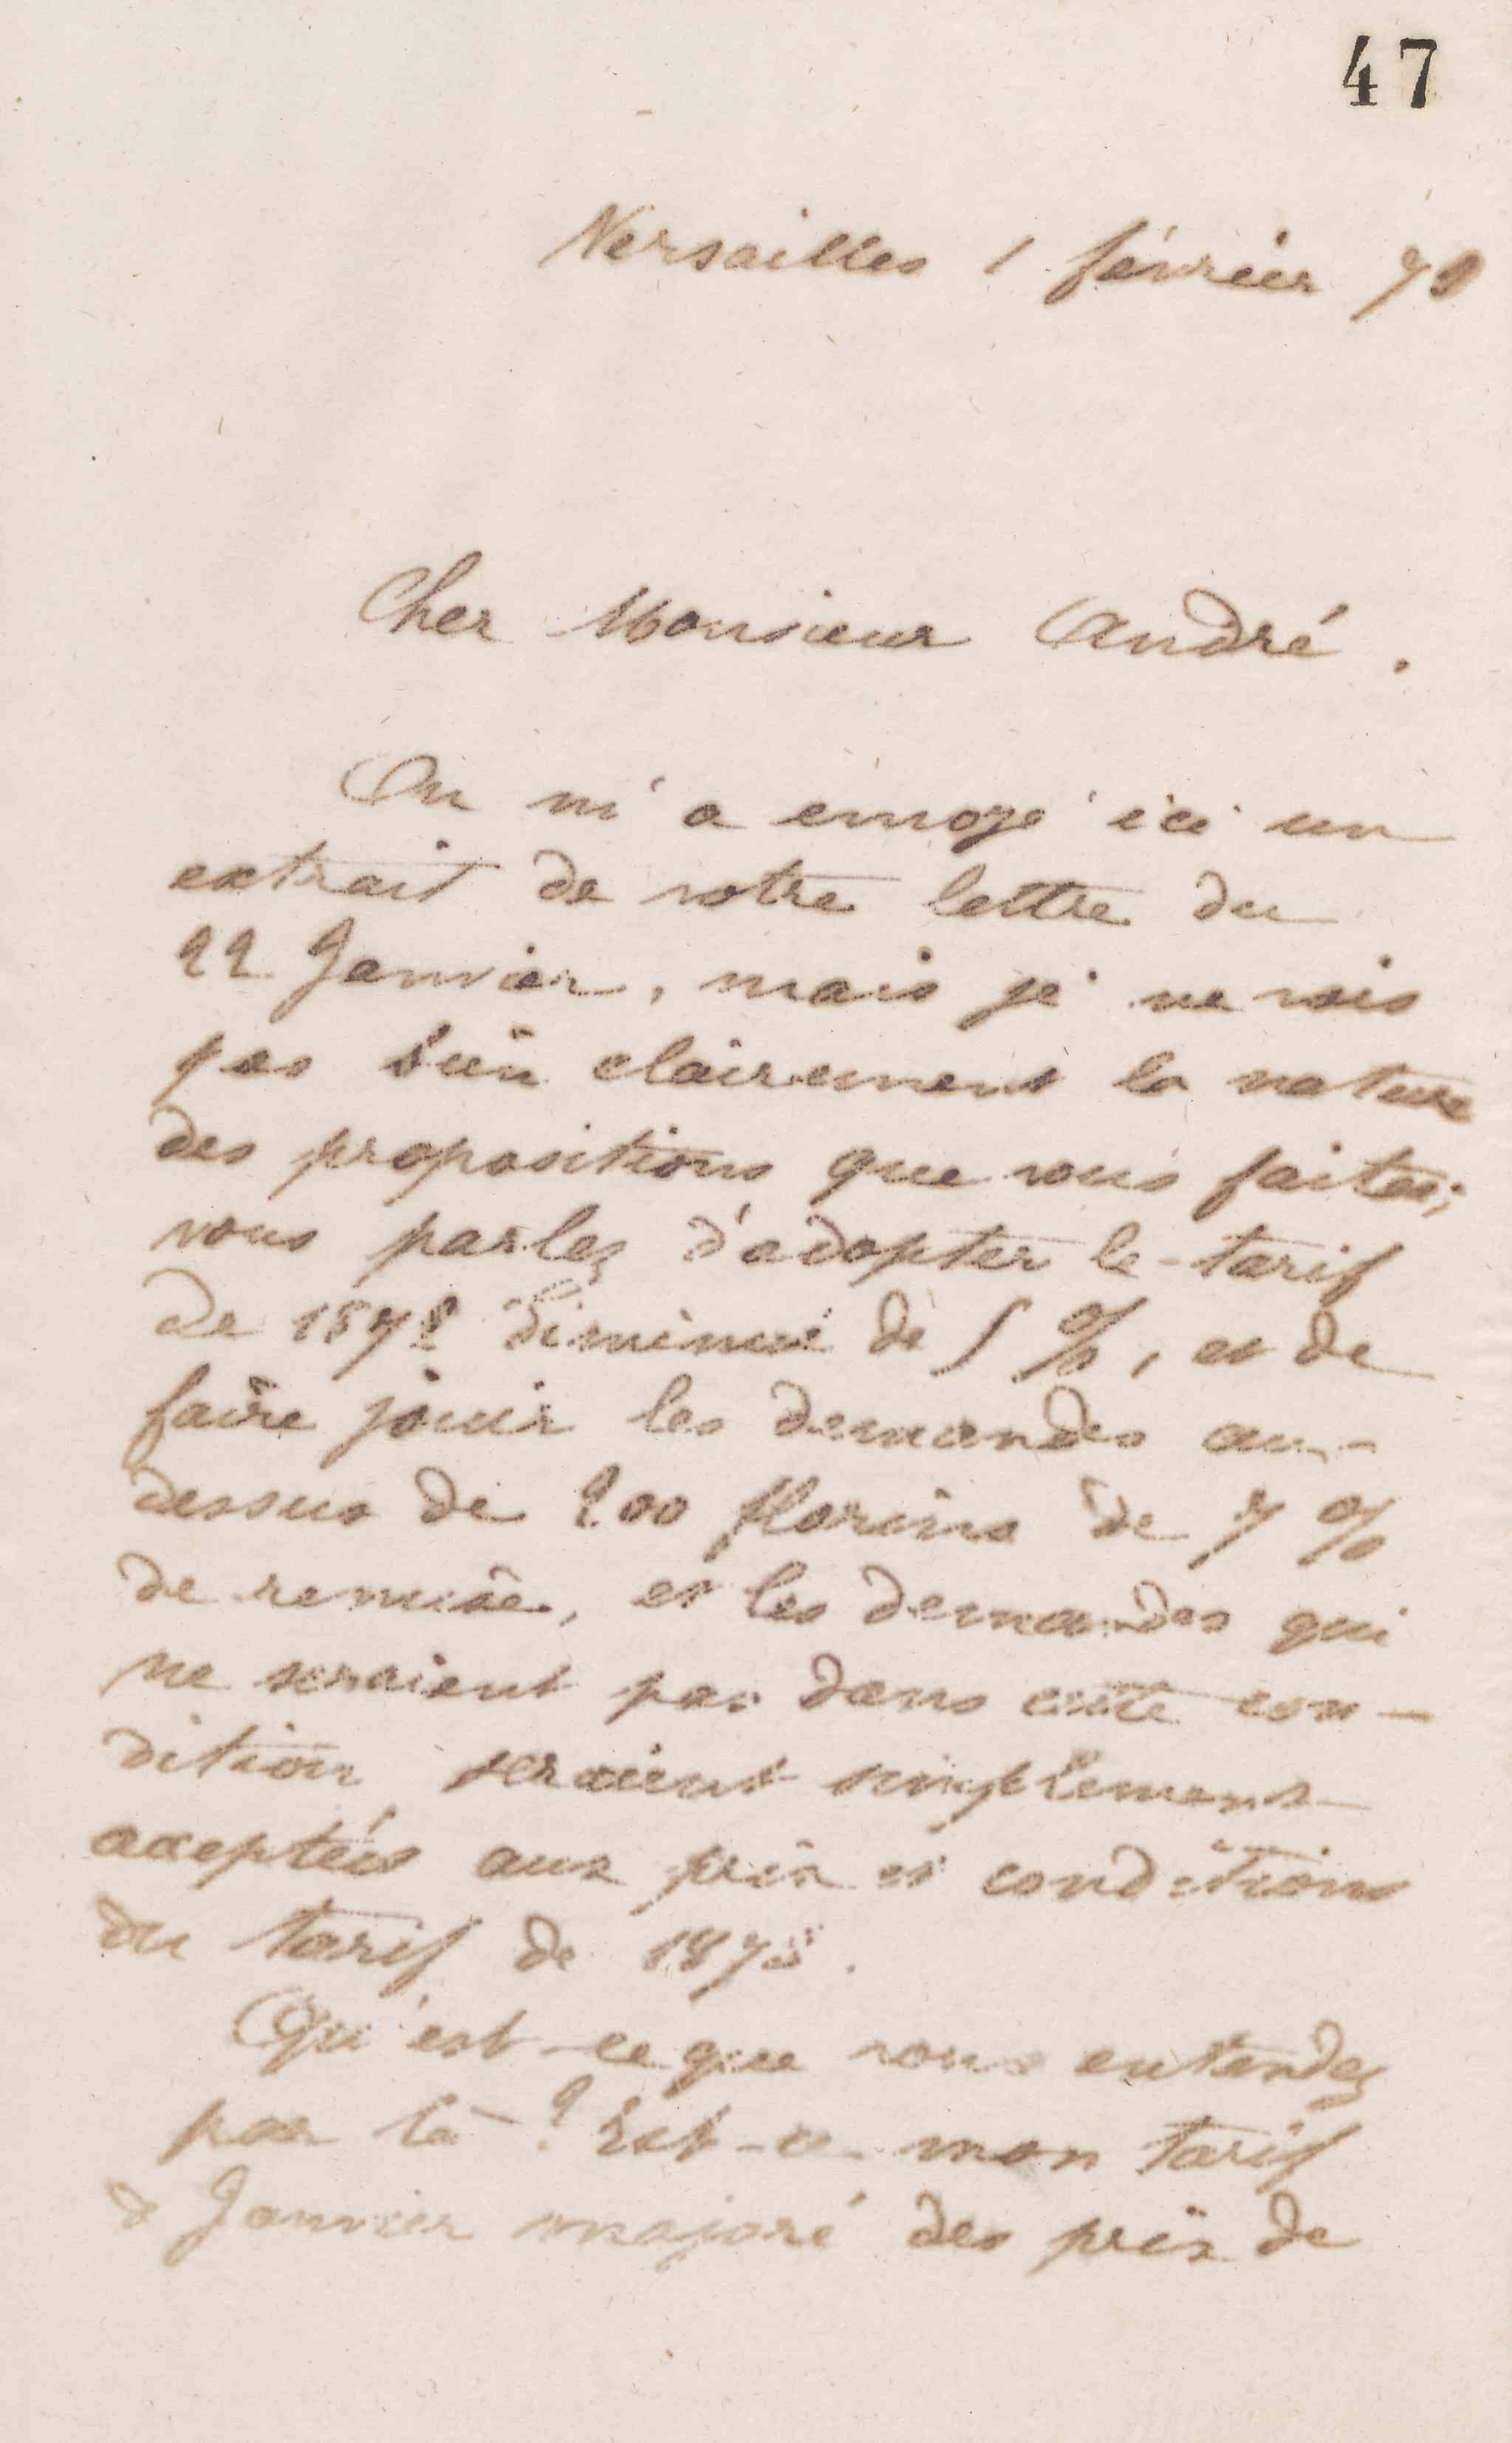 47
Versailles 1 février 79
Cher Monsieur André.
On m'a envoyé ici un
extrait de votre lettre du
22 Janvier, mais je ne vois
pas bien clairement la nature
des propositions que vous faites;
vous parlez d'adopter le tarif
de 1878 diminué de 5 %, et de
faire jouir les demandes au-
dessus de 200 florins de 7 %
de remise, et les demandes qui
ne seraient pas dans cette con-
dition seraient simplement
acceptées aux prix et conditions
du tarif de 1878.
Qu'est-ce que vous entendez
par là ? Est-ce mon tarif
de Janvier majoré des prix de